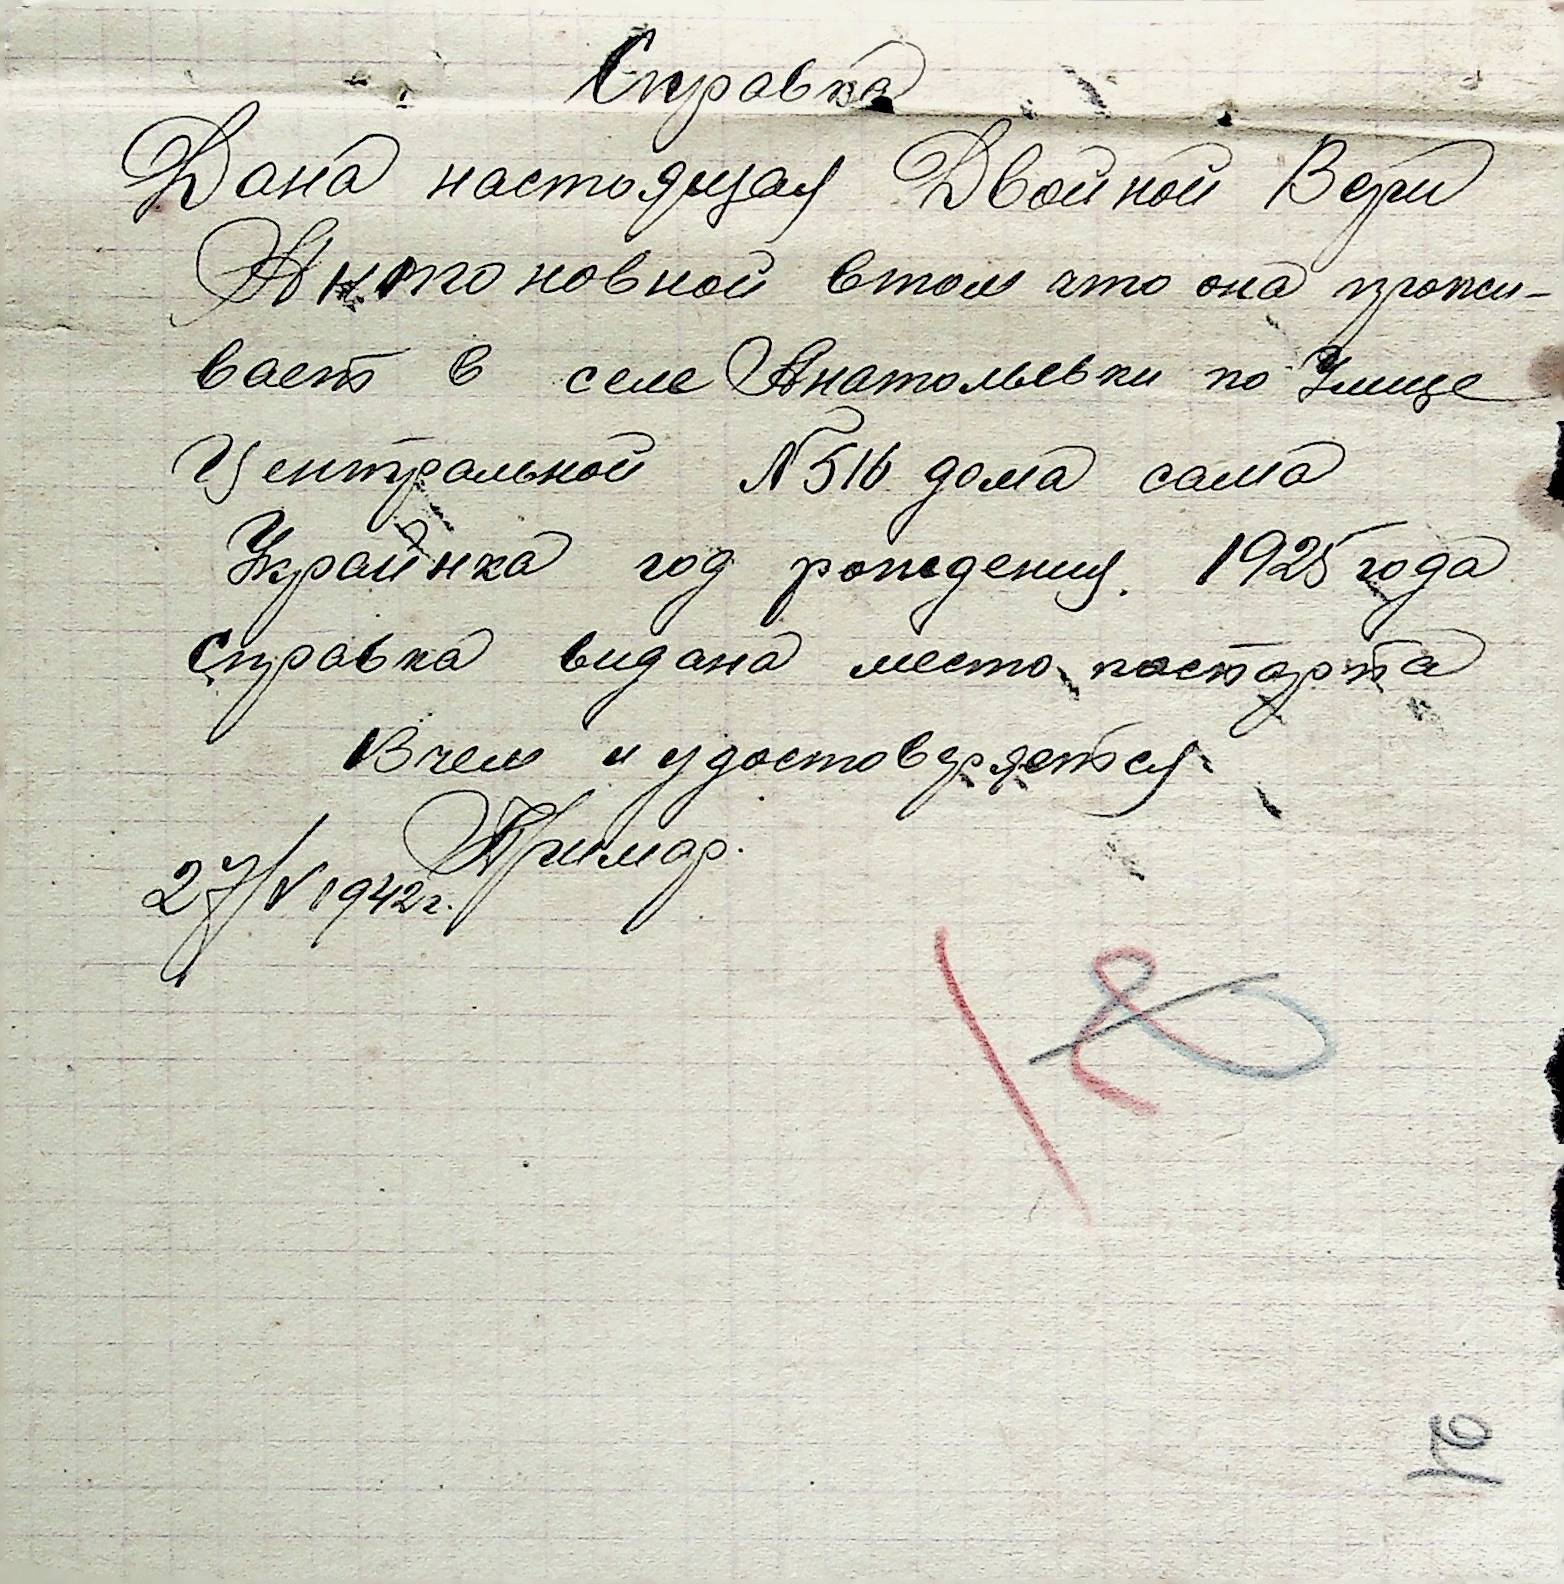 Справка
Дана настоящая Двойной Веры
Антоновной втом что она прожи-
вает в селе Анатольевки по Улице
Центральной №516 дома сама
Украинка год рождения. 1925 года
Справка видана место паспорта
В чем и удостоверяется
Примар.
27/V 1942г.
21